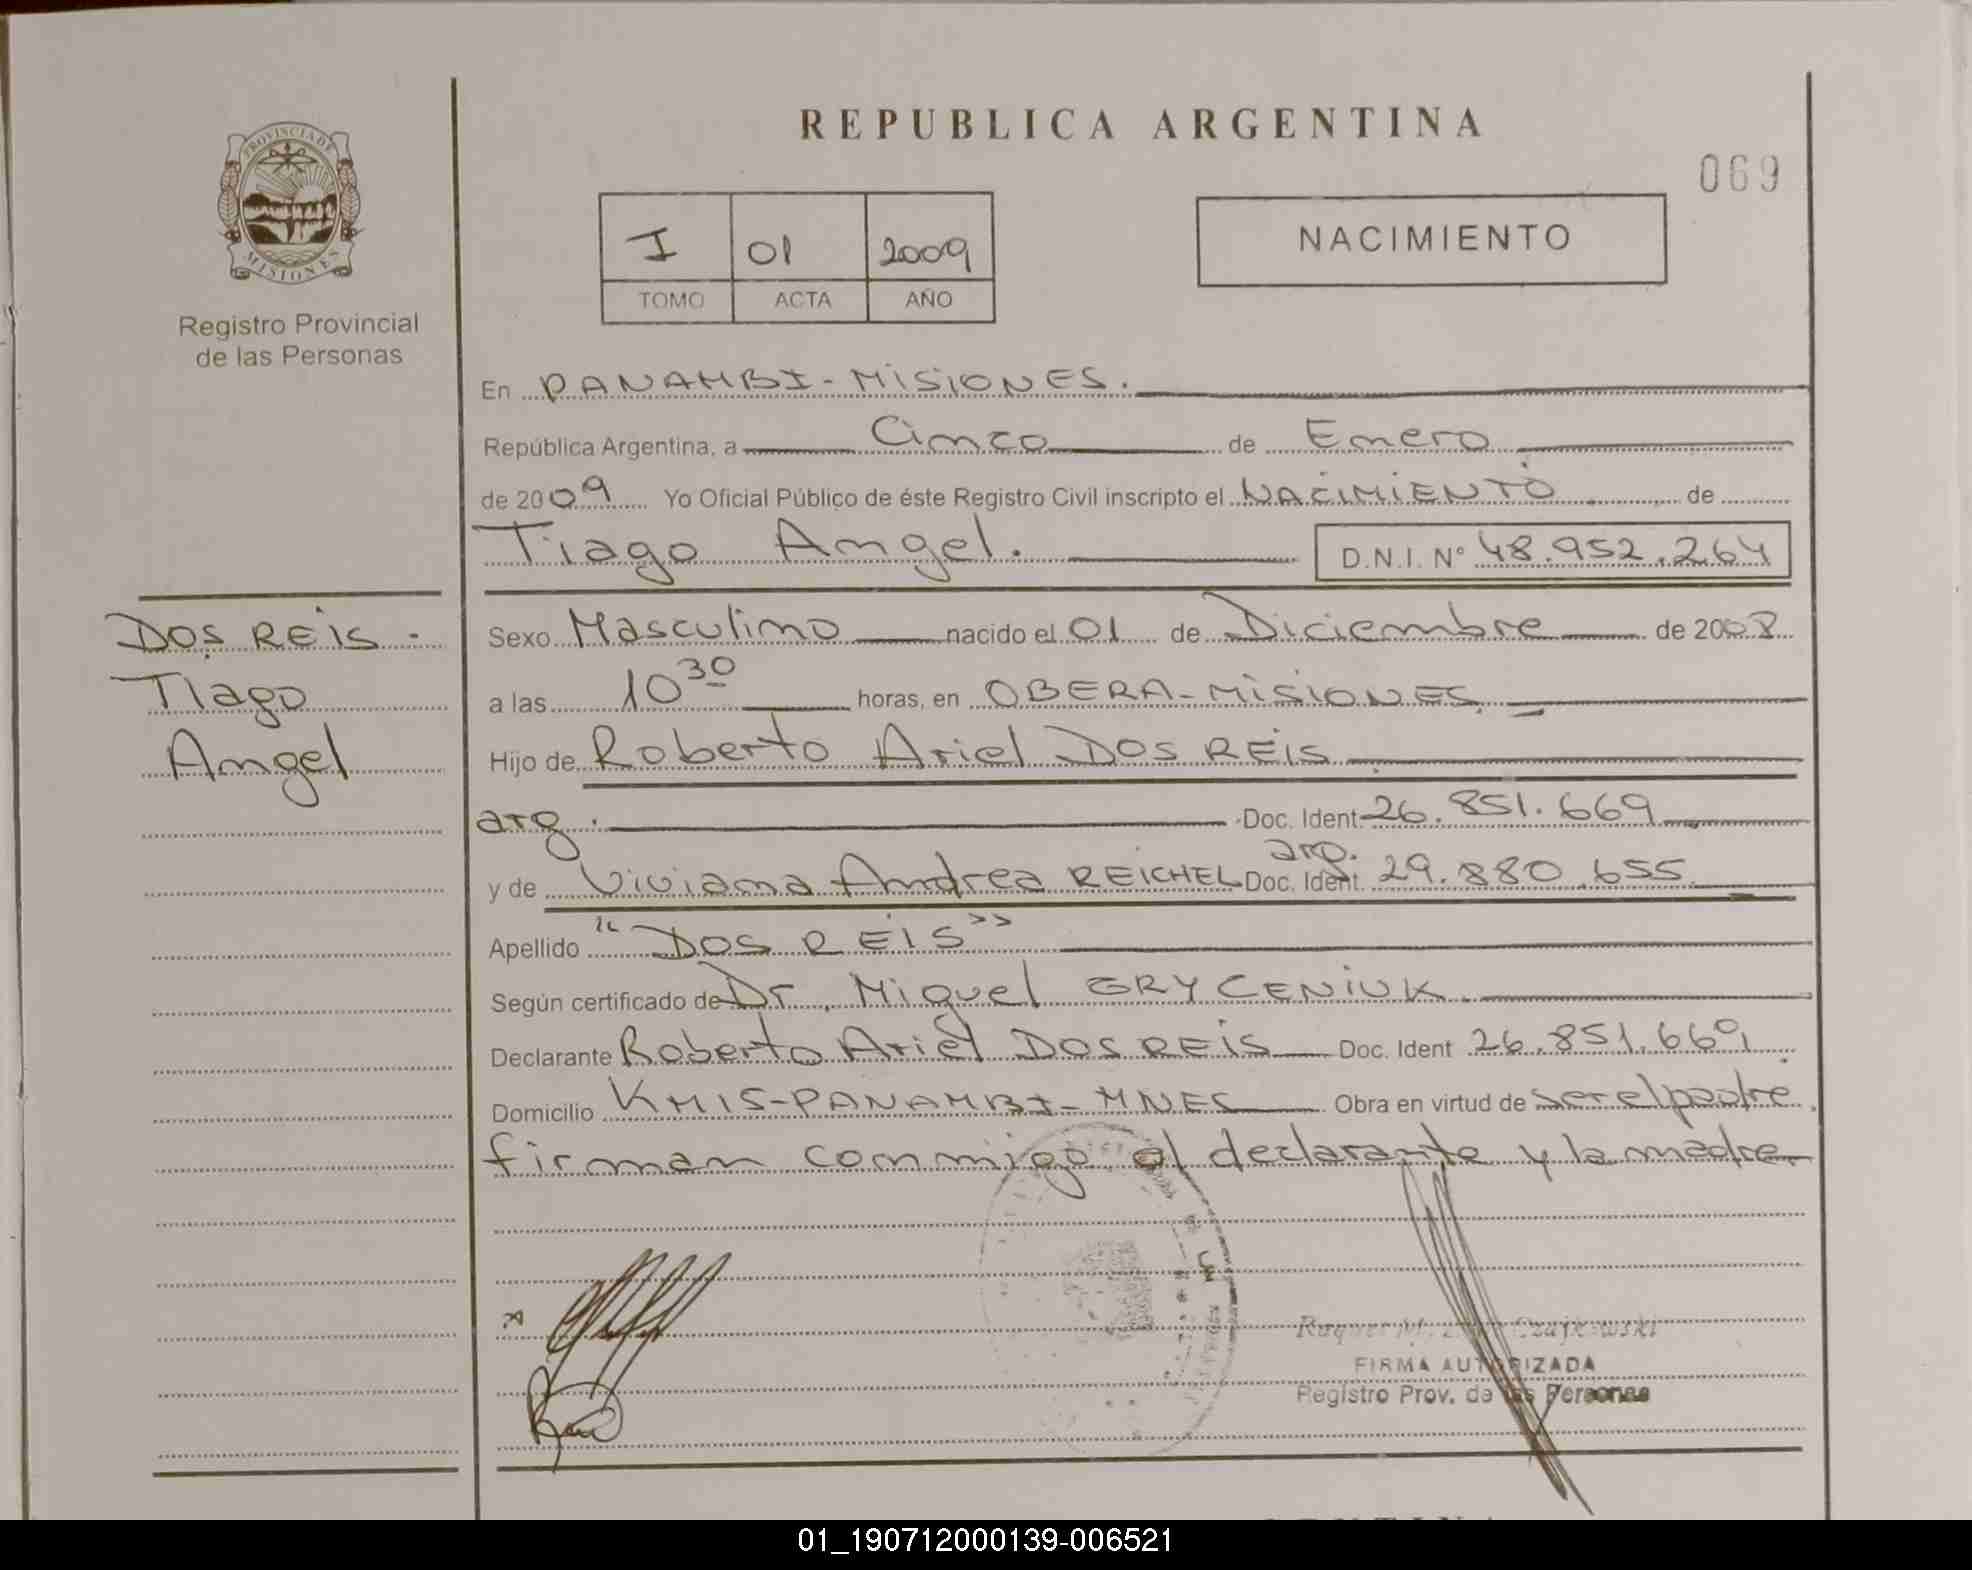 REPUBLICA ARGENTINA
069
PROVINCIA DE
MISIONES
Registro Provincial
de las Personas
I 01 2009
TOMO ACTA AÑO
NACIMIENTO
En PANAMBI-MISIONES.
República Argentina, a Cinco de Enero
de 2009 Yo Oficial Público de éste Registro Civil inscripto el NACIMIENTO de
Tiago Angel. D.N.I. N° 48.952.264
DOS REIS.
Tiago
Angel
Sexo Masculino nacido el 01 de Diciembre de 2008
a las 10 30 horas, en OBERA-MISIONES
Hijo de Roberto Ariel DOS REIS
arg. Doc. Ident. 26.851.669
y de Viviana Andrea REICHEL arg. Doc. Ident. 29.880.655
Apellido "DOS REIS"
Según certificado de Dr. Miguel GRYCENIUK.
Declarante Roberto Ariel DOS REIS Doc. Ident 26.851.669
Domicilio KM15-PANAMBI-MNES Obra en virtud de ser el padre
firman conmigo el declarante y la madre.
Raquel M. Czajkowski
FIRMA AUTORIZADA
Registro Prov. de las Personas
01_190712000139-006521